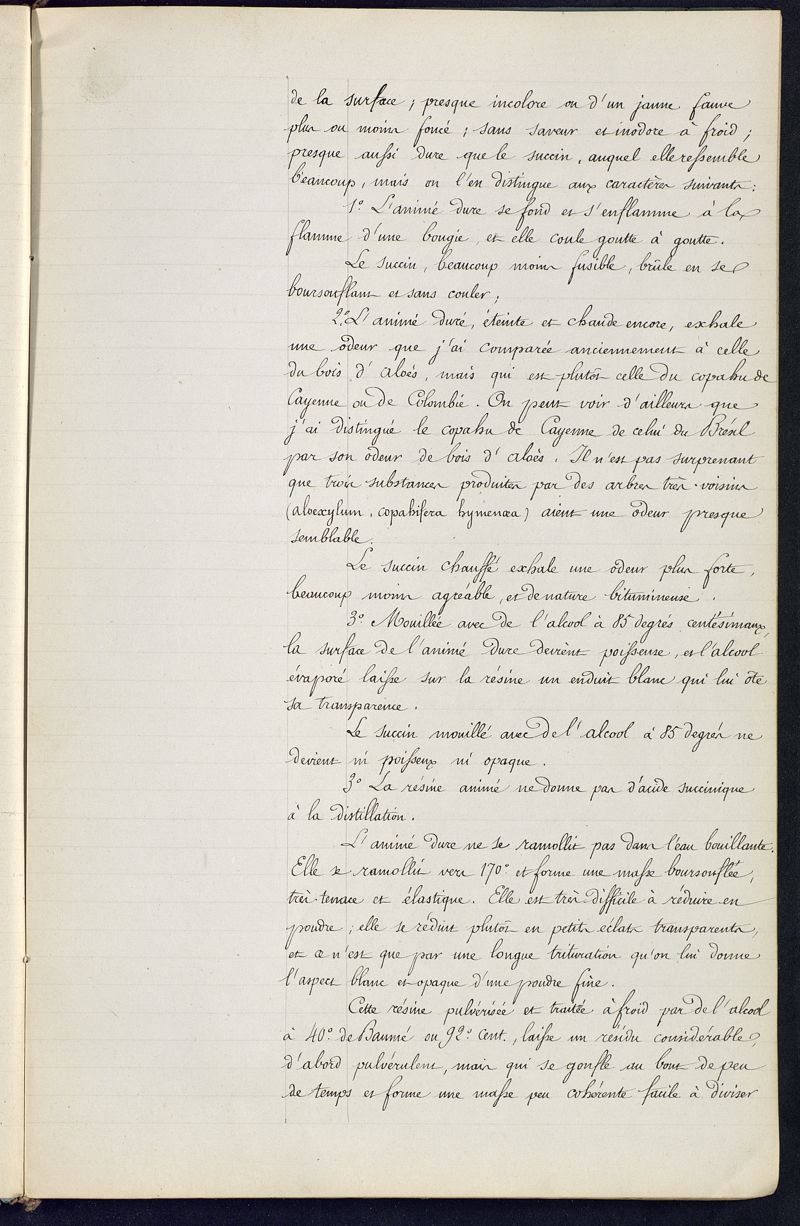 de la surface ; presque incolore ou d'un jaune fauve
plus ou moins foncé ; sans saveur et inodore à froid ;
presque aussi dure que le succin, auquel elle ressemble
beaucoup, mais on l'en distingue aux caractères suivants :
1º L'animé dure se fond et s'enflamme à la
flamme d'une bougie, et elle coule goutte à goutte.
Le succin, beaucoup moins fusible, brûle en se
boursouflant et sans couler ;
2º L'animé duré, éteinte et chaude encore, exhale
une odeur que j'ai comparée anciennement à celle
du bois d'aloés, mais qui est plutôt celle du copahu de
Cayenne ou de Colombie. On peut voir d'ailleurs que
j'ai distingué le copahu de Cayenne de celui du Brésil
par son odeur de bois d'aloès. Il n'est pas surprenant
que trois substances produites par des arbres très-voisins
(aloexylum, copahifera hymenæa) aient une odeur presque
semblable.
Le succin chauffé exhale une odeur plus forte,
beaucoup moins agréable, et de nature bitumineuse.
3º Mouillée avec de l'alcool à 85 degrés centésimaux,
la surface de l'animé dure devient poisseuse, et l'alcool
évaporé laisse sur la résine un enduit blanc qui lui ôte
sa transparence.
Le succin mouillé avec de l'alcool à 85 degrés ne
devient ni poisseux ni opaque.
3º La résine animé ne donne pas d'acide succinique
à la distillation.
L'animé dure ne se ramollit pas dans l'eau bouillante.
Elle se ramollit vers 170º et forme une masse boursouflée,
très-tenace et élastique. Elle est très-difficile à réduire en
poudre ; elle se réduit plutôt en petits éclats transparents,
et ce n'est que par une longue trituration qu'on lui donne
l'aspect blanc et opaque d'une poudre fine.
Cette résine pulvérisée et traitée à froid par de l'alcool
à 40º de Baumé ou 92º cent., laisse un résidu considérable,
d'abord pulvérulent, mais qui se gonfle au bout de peu
de temps et forme une masse peu cohérente facile à diviser